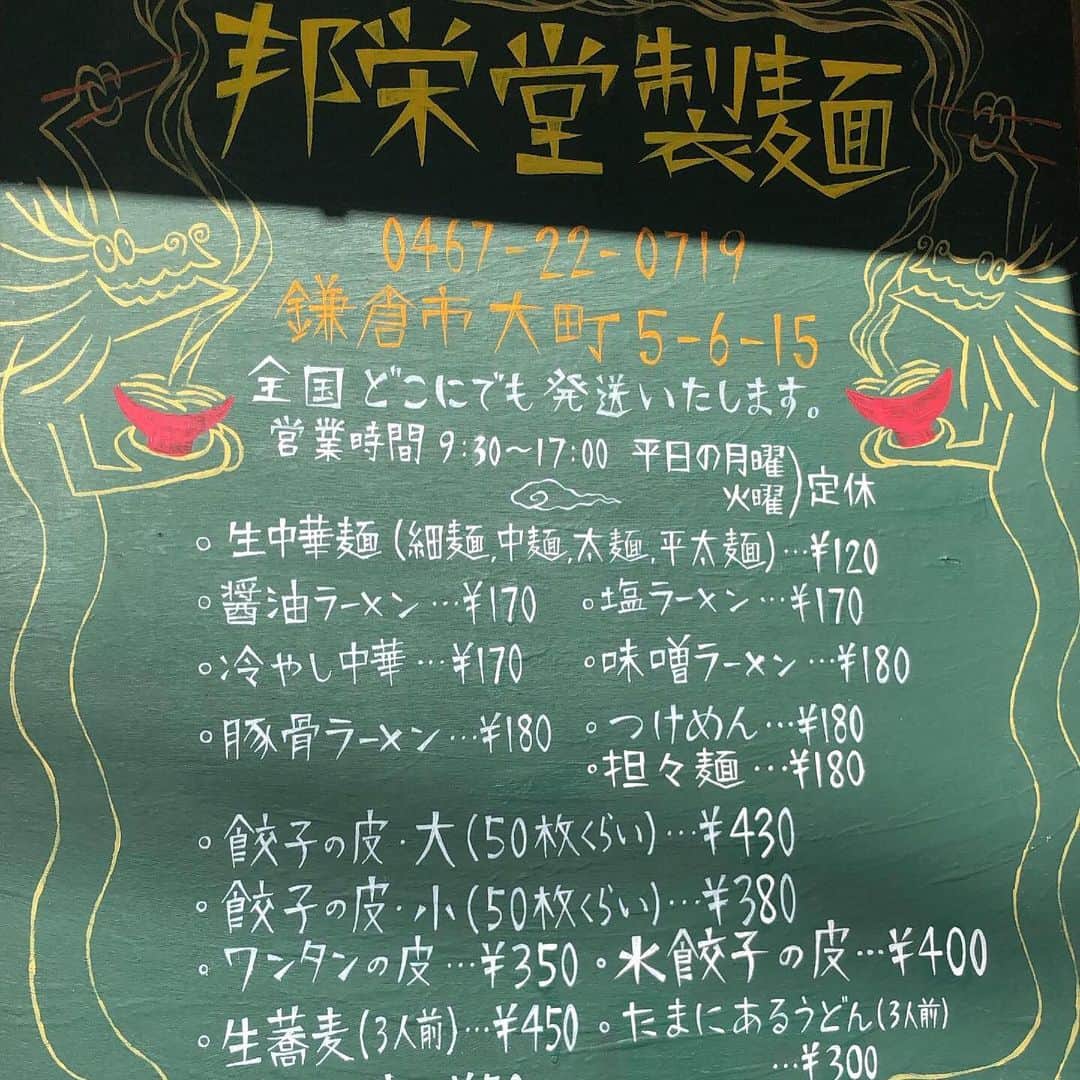 邦栄堂製麺
0467-22-0719
鎌倉市大町5-6-15
全国どこにでも発送いたします。
営業時間 9:30～17:00 平日の月曜
火曜)定休
。生中華麺(細麺,中麺,太麺,平太麺)…¥120
。醤油ラーメン…¥170 。塩ラーメン…¥170
。冷やし中華…¥170 。味噌ラーメン…¥180
。豚骨ラーメン…¥180 。つけめん…¥180
。担々麺…¥180
。餃子の皮・大(50枚くらい)…¥430
。餃子の皮・小(50枚くらい)…¥380
。ワンタンの皮…¥350 。水餃子の皮…¥400
。生蕎麦(3人前)…¥450 。たまにあるうどん(3人前)
…¥300